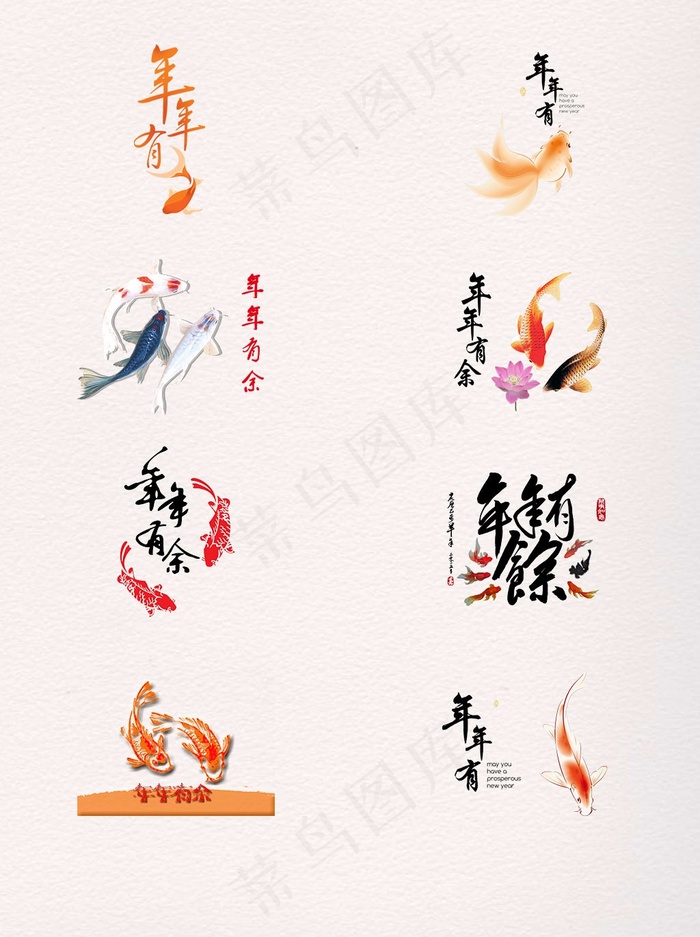 年年有
年年有
may you
have a
prosperous
new year
年年有余
年年有余
年年有余
年年有餘
年年有余
年年有
may you
have a
prosperous
new year
菜鸟图库
菜鸟图库
菜鸟图库
菜鸟图库
菜鸟图库
菜鸟图库